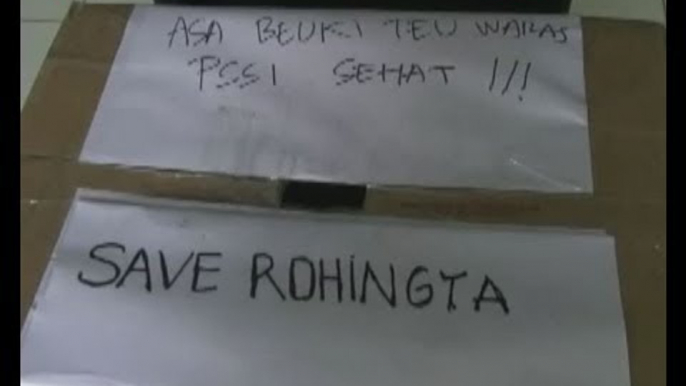 ASA BEUKI TEU WARAS
PSSI SEHAT !!!
SAVE ROHINGTA